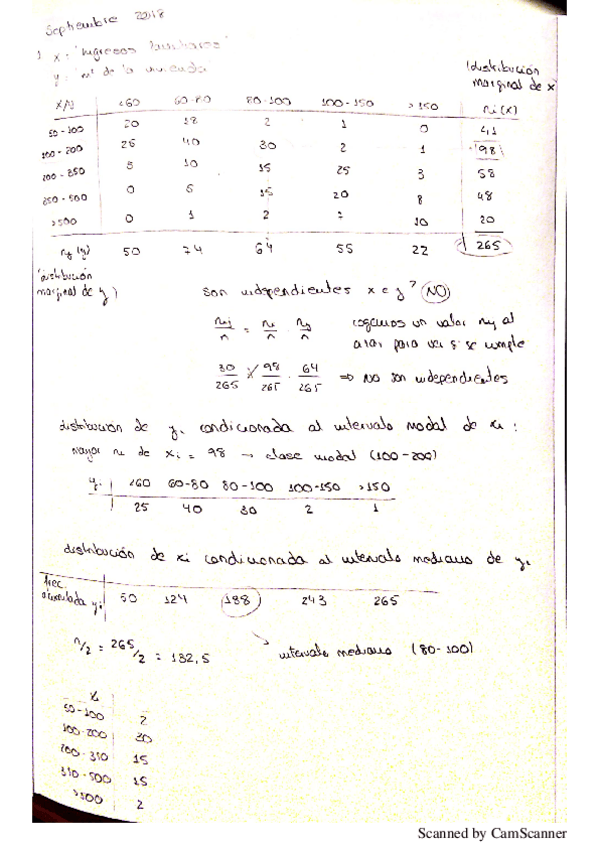 Septiembre 2018
1 x: "ingresos familiares"
y: "m² de la vivienda"
(distribución marginal de x)
X/Y <60 60-80 80-100 100-150 >150 ni(x)
50-100 20 18 2 1 0 41
100-200 25 40 30 2 1 98
200-350 5 10 15 25 3 58
350-500 0 5 15 20 8 48
>500 0 1 2 7 10 20
nj(y) 50 74 64 55 22 265
(distribución marginal de y)
son independientes x e y? NO
nij/n = ni/n · nj/n cogemos un valor nij al azar para ver si se cumple
30/265 X 98/265 · 64/265 => NO son independientes
distribución de yi condicionada al intervalo modal de xi:
mayor ni de xi = 98 → clase modal (100-200)
yi <60 60-80 80-100 100-150 >150
25 40 30 2 1
distribución de xi condicionada al intervalo mediano de yi
frec. acumulada yi 50 124 188 243 265
n/2 = 265/2 = 132,5
intervalo mediano (80-100)
xi
50-100 2
100-200 30
200-350 15
350-500 15
>500 2
Scanned by CamScanner